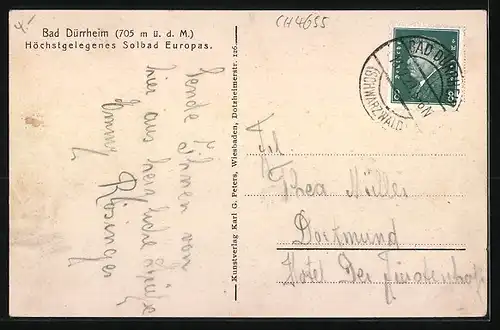 4.-
CH4655
Bad Dürrheim (705 m ü. d. M.)
Höchstgelegenes Solbad Europas.
Sende Ihnen von
hier aus herzliche Grüße
Emmy
Rösinger
Kunstverlag Karl G. Peters, Wiesbaden, Dotzheimerstr. 126.
BAD DÜRRHEIM
(SCHWARZWALD)
Frl.
Thea Müller
Dortmund
Hotel Der Fürstenhof